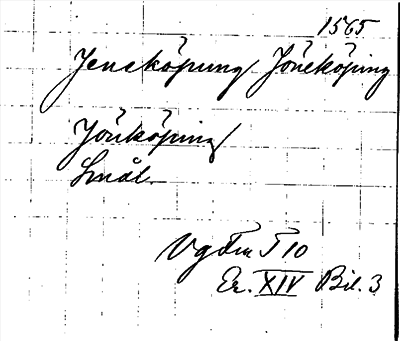 1565
Jeneköpung Jöneköping
Jönköping
Smål.
Vg Fm I 10
Er. XIV Bil. 3